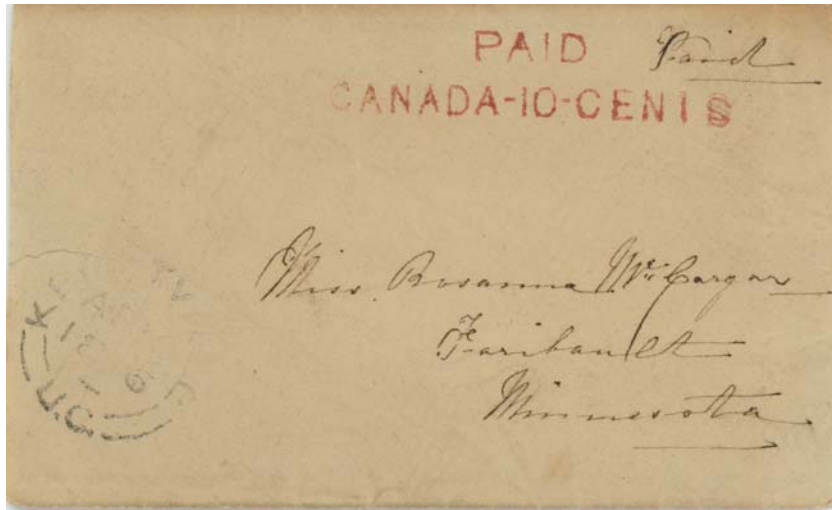 PAID Paid
CANADA-10-CENTS
Miss. Rosanna McCargar
Faribault
Minnesota
U.C.